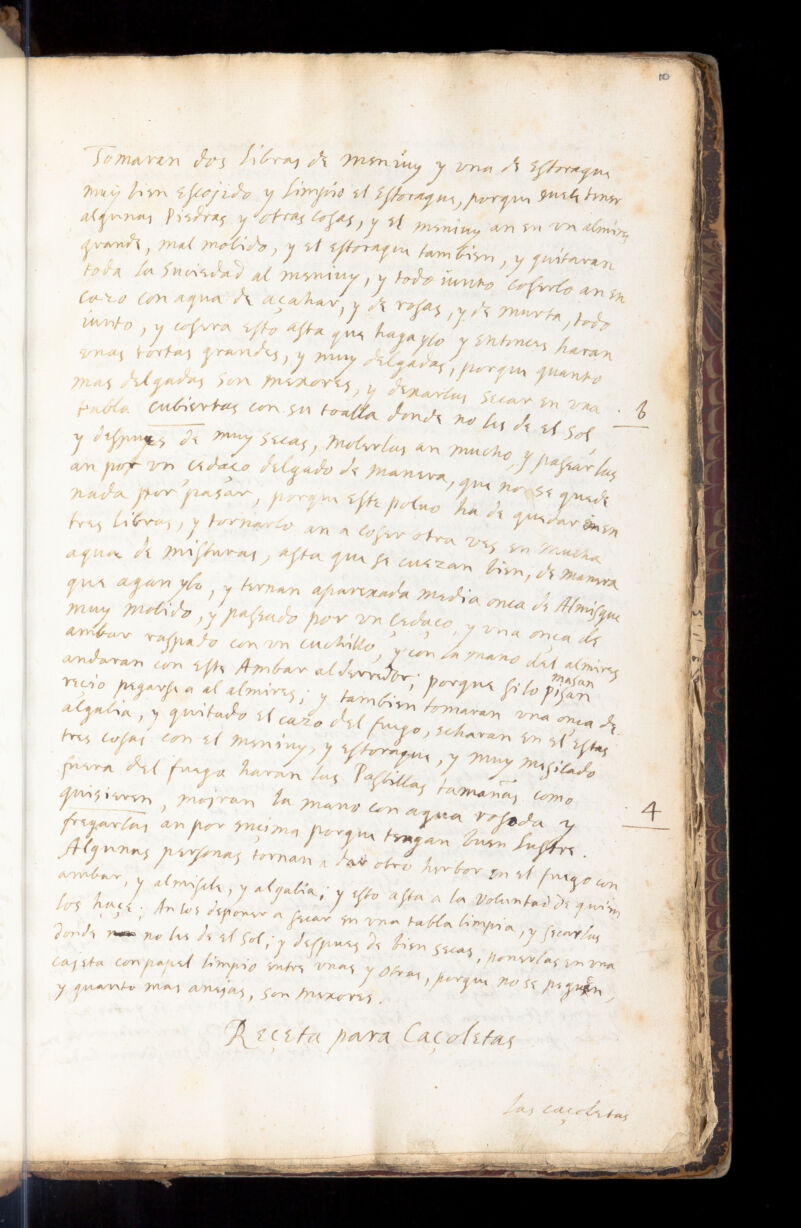 10
Tomaran dos libras de meniuy y vna de estoraque
muy bien escojido y limpio el estoraque, porque suele tener
algunas Piedras y otras cosas, y el meniuy an en vn almires
grande, mal molido, y el estoraque tambien, y quitaran
toda la suciedad al meniuy, y todo iunto coserlo an en
cazo con agua de açahar, y de rosas, y de murta, todo
iunto, y cosera esto asta que haga ylo y entonces haran
vnas tortas grandes, y muy delgadas, porque quanto
mas delgadas son mexores, y dexarlas secar en vna
tabla cubiertas con su toalla donde no les de el sol, . 6
y despues de muy secas, molerlas an mucho, y pasarlas
an por vn cedaço delgado de manera, que no se quede
nada por pasar, porque este poluo ha de quedar en
tres libras, y tornarlo an a coser otra ves en mucha
agua de misturas, asta que se cuezan bien, de manera
que agan ylo, y ternan aparexada media onça de Almisque
muy molido, y pasado por vn çedaço, y vna onça de
ambar raspado con vn cuchillo, y con la mano del almires
andaran con este Ambar alderredor; porque si lo pisan
masan
reçio pegarse a al almires; y tambien tomaran vna onça de
algalia, y quitado el cazo del fuego, echaran en el estas
tres cosas con el meniuy, y estoraque, y muy mesclado
fuera del fuego haran las Pastillas tamañas como
quisieren, mojran la mano con agua rosada y . 4
fregarlas an por encima porque tengan buen lustre.
Algunas personas tornan a dar otro herbor en el fuego con
ambar, y almiscle, y algalia; y esto asta a la voluntad de quien
los haçe; An los deponer a secar en vna tabla limpia, y secarlas
donde no les de el sol; y despues de bien secas, ponerlas en vna
cajeta con papel limpio entre vnas y otras, porque no se peguen,
y quanto mas anejas, son mexores.
Reçeta para Caçoletas
las caçoletas